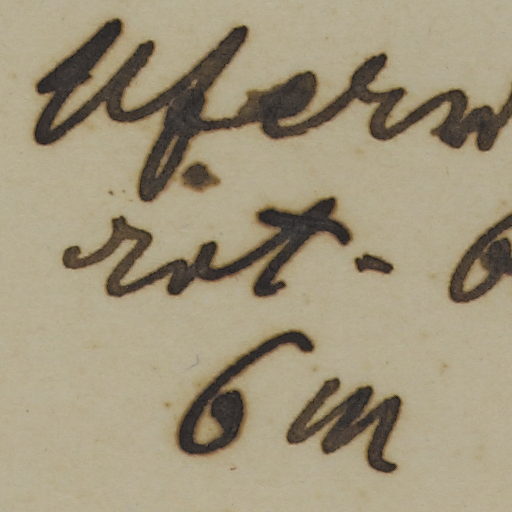 Uferw
rot - 6
6 m